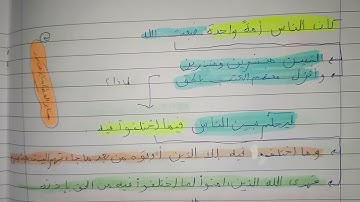 كان الناس أمة واحدة فبعث الله
النبيين مبشرين ومنذرين
وأنزل معهم الكتب بالحق لماذا؟
ليحكم بين الناس فيما اختلفوا فيه
وما اختلف فيه إلا الذين أوتوه من بعد ما جاءتهم البينت
فهدى الله الذين ءامنوا لما اختلفوا فيه من الحق بإذنه